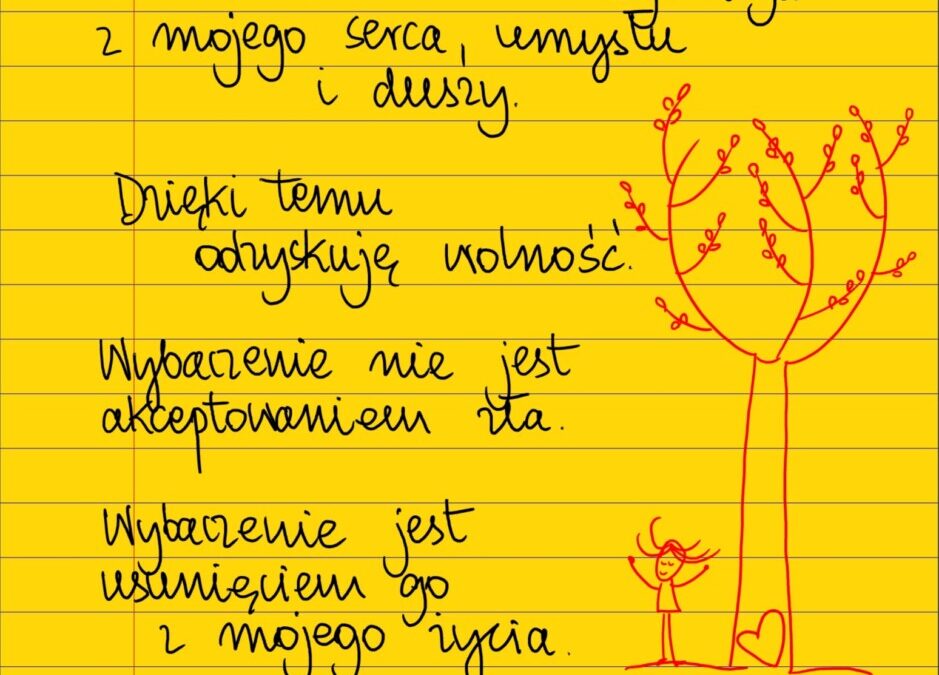 z mojego serca, umysłu
i duszy.
Dzięki temu
odzyskuję wolność.
Wybaczenie nie jest
akceptowaniem zła.
Wybaczenie jest
usunięciem go
z mojego życia.